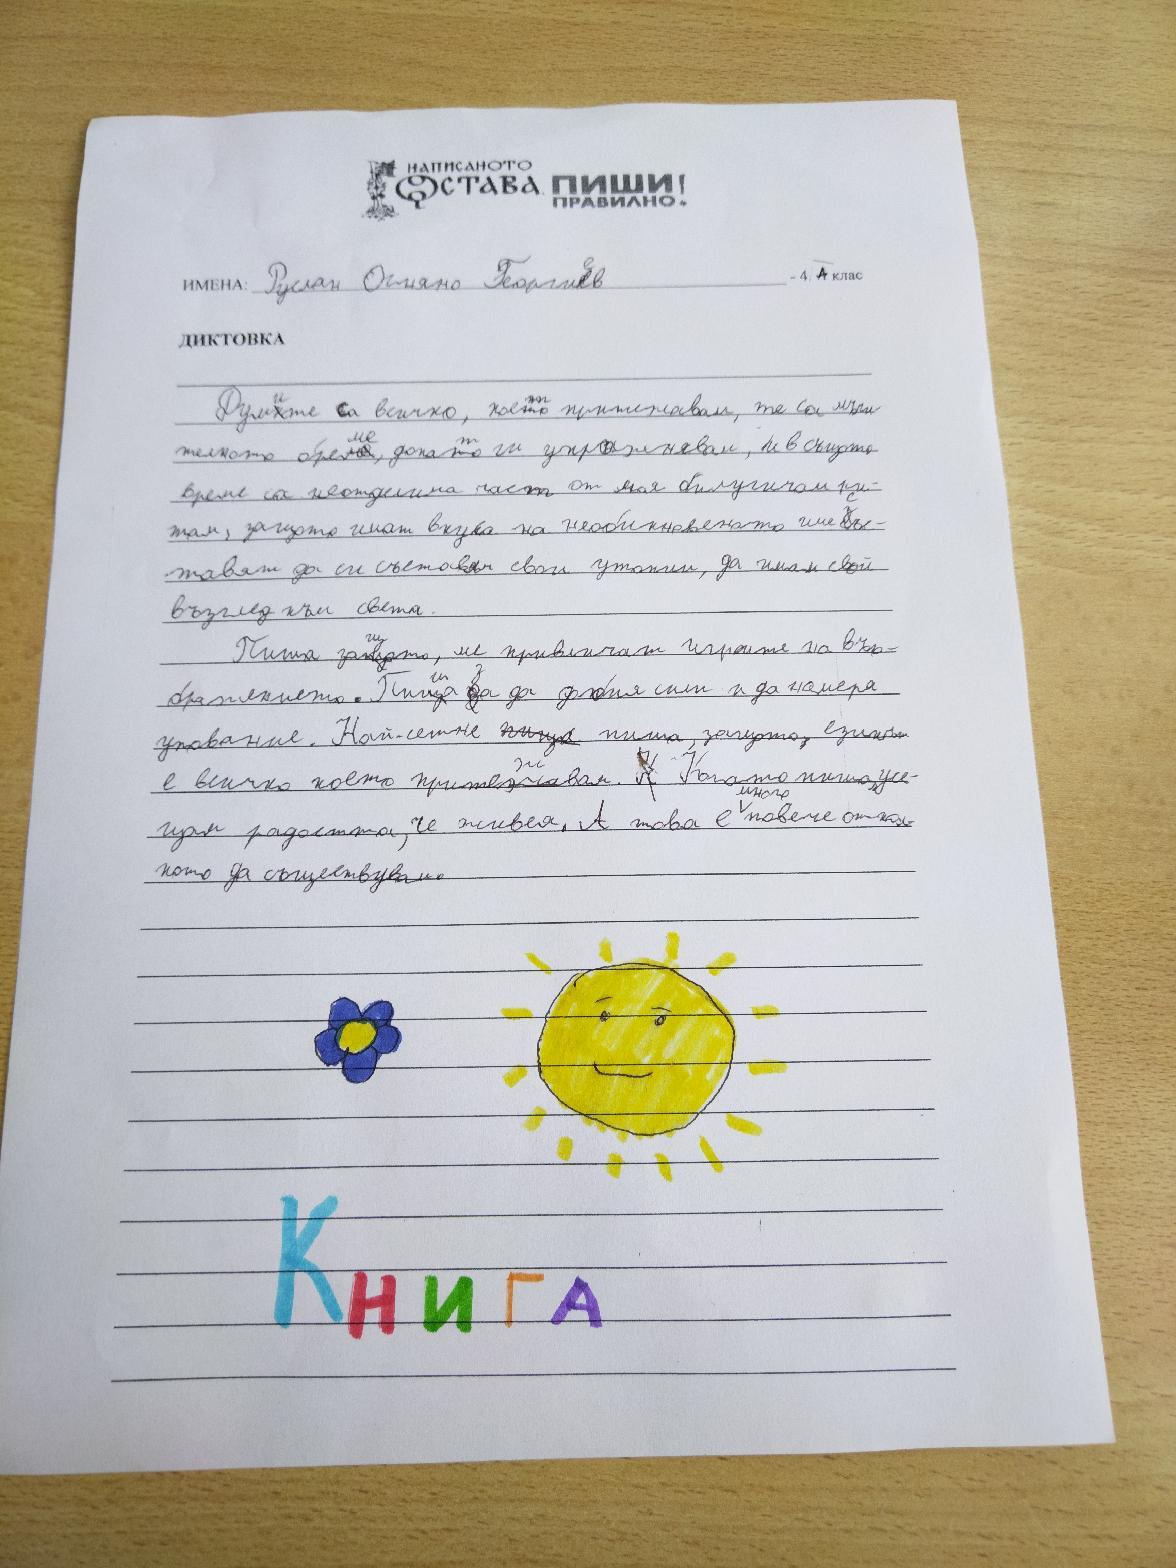 НАПИСАНОТО
ОСТАВА ПИШИ
ПРАВИЛНО!
ИМЕНА: Руслан Огняно Георгиев - 4. А клас
ДИКТОВКА
Думите са всичко, което притежавам, те са мъчи
телното бреме, докато ги упражнявам, но в същото
време са неотделима част от моя
там, защото имат вкуса на необикновеното име
тавят да си съставям свои утопии, да имам свой
възглед към света.
Пиша защото, ме привличат игрите на въо-
бражението. Пиша за да добия сили и да намеря
упование. Най-сетне пиша, защото, езикът
е всичко което притежавам. Когато пиша, усе-
щам радостта, че живея. А това е много повече от ка-
кото да съществувам.
Книга